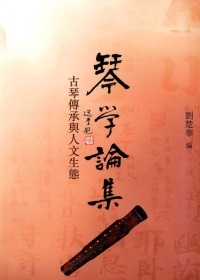 琴学論集
選堂題
古琴傳承與人文生態
劉楚華 編